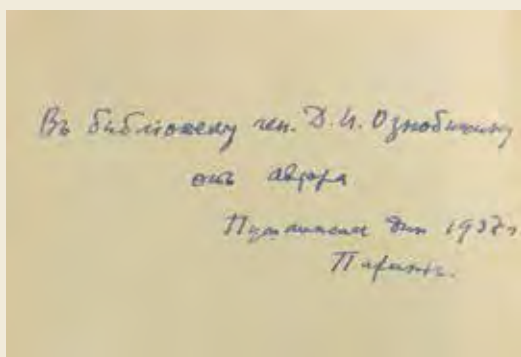 Въ библіотеку ген. Д. И. Ознобишину
отъ автора
Пушкинскіе дни 1937 г
Парижъ.